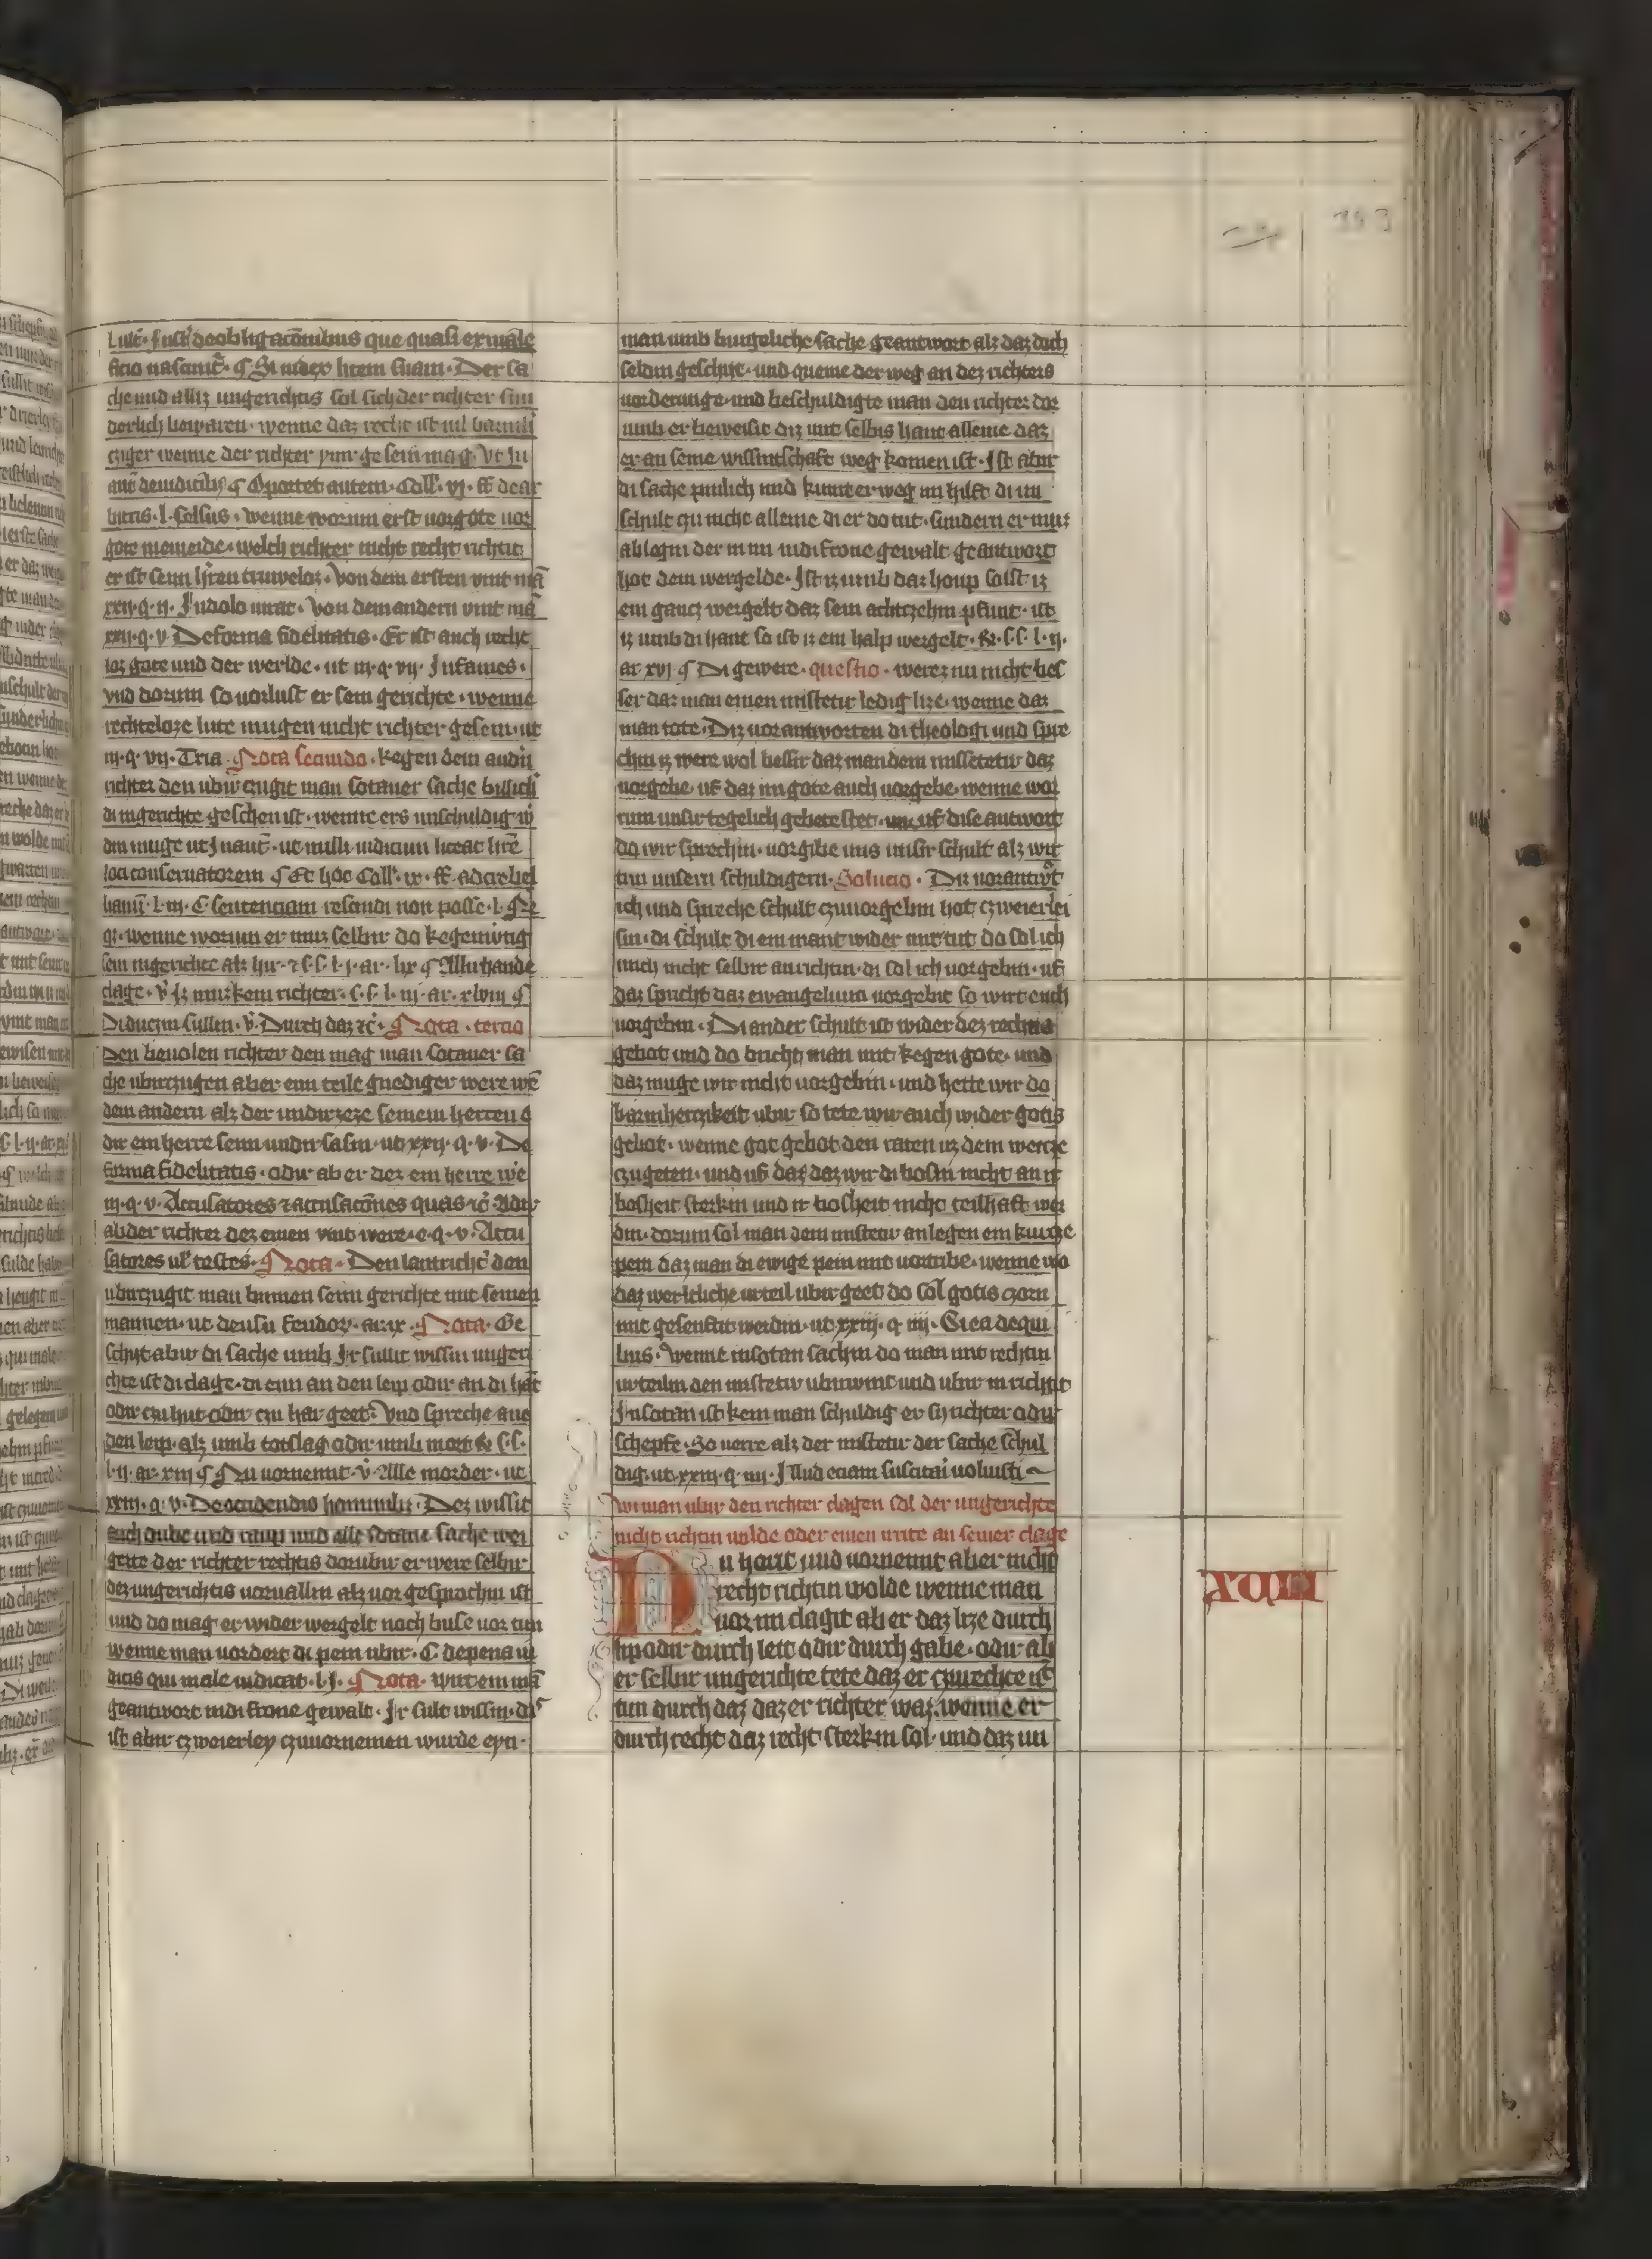 lute. Just' deobligac̄onibus que quasi ex male
ficio nascunt̄. ¶ Si iudex litem suam. Der sa
che und alliz ungerichtis sol sich der richter sun
derlich bewaren. wenne daz recht ist vil barmh
cziger wenne der richter ymmer gesein mag. Vt in
aut̄ deiudicib; ¶ Oportet autem. Coll'. vj. ff dear
bitris. l. Celsus. wenne worum erst uorgote uor
gote meineide. welch richter nicht recht richtit
er ist seim h'ren truwelos. Von dem ersten vint mā
xxij. q. ij. In dolo iurat. Von dem andern vint mā
xxij. q. v Deforma fidelitatis. Er ist auch recht
loz gote und der werlde. ut iij. q. vij. Infames.
vnd dorum so uorlust er sein gerichte. wenne
rechteloze lute mugen nicht richter gesein. ut
iij. q. vij. Tria. Nota secundo. kegen dem andn̄
richter den ubir czugit man sotaner sache billich
di ingerichte geschen ist. wenne ers unschuldig w
din muge ut In aut̄. ut nulli iudicum liceat h're
loci conseruatorem ¶ Et hoc Coll'. ix. ff. ad trebel
lianū. l. iii. C sentenciam rescindi non posse. l. Nr
q;. wenne worum er muz selbir do kegenwtig
sein ingerichte alz hir. ⁊ s. s. l. j. ar. lix ¶ Allirhande
clage. v̄ Iz muz kein richter. s. s. l. iij. ar. xlviij ¶
Di duczin sullin. v̄. Durch daz ⁊c̄. Nota. tercio
Den beuolen richter den mag man sotaner sa
che ubirczugen aber ein teile gnediger were wē
dem andern alz der undirseze seinem herren o
dir ein herre seim undirsasin. ut xxij. q. v. De
forma fidelitatis. odir ab er dez ein herre we
iij. q. v. Accusatores ⁊ accusac̄ones quas ⁊c̄ Adir
ab der richter dez einen vint were. e. q. v. Accu
satores ul' testes. Nota. Den lantricht' den
ubirczugit man binnen seim gerichte mit seinen
mannen. ut deusu feudor. ar. ix. Nota. Ge
schyt abir di sache umb Ir sullit wissin ungeri
chte ist di clage. di eim an den leip odir an di hāt
odir czu hut odir czu har geet. Vnd spreche ane
den leip. alz umb totslag odir umb mort ⁊ s. s.
l. ij. ar. xiij ¶ Nu uornemit. v̄. Alle morder. ut
xxiij. q. v. Deoccidendis hominib;. Dez wissit
auch dube und raup und alle sotane sache wei
gerte der richter rechtis dorubir er were selbir
dez ungerichtis uoruallin alz uor gesprochin ist
und do mag er wider wergelt noch buse uor tun
wenne man uordert di pein ubir. C depena iu
dicis qui male iudicat. l. j. Nota. wirt ein mā
geantwort in di frone gewalt. Ir sult wissin. di
ist abir czweierley czuuornemen wurde eyn.
man umb burgeliche sache geantwort alz daz doch
seldin geschyt. und queme der weg an dez richters
uorderunge. und beschuldigte man den richter dor
umb er beweisit diz mit selbis hant alleine daz
er an seine wissintschaft weg komen ist. Ist abir
di sache pinlich und kumt er weg im hilft di un
schult gu nicht alleine di er do tut. sundern er muz
ablegin der in im in di frone gewalt geantwort
hot dem wergelde. Ist iz umb daz houp so ist iz
ein gancz wergelt daz sein achtzehin pfunt. ist
iz umb di hant so ist iz ein halp wergelt. ⁊. s. s. l. ij.
ar. xvj ¶ Di gewere. questio. werez nu nicht bes
ser daz man einen misteter ledig lize. wenne daz
man tote. Diz uorantworten di theologi und spre
chin iz were wol bessir daz man dem missetetir daz
uorgebe. uf daz im gote auch uorgebe. wenne wor
rum unsir tegelich gebete stet. uf dise antwort
do wir sprechin. uorgibe uns unsir schult alz wir
tun unsern schuldigern. Solucio. Diz uorantw't
ich und spreche schult czuuorgebin hot czweierlei
sin. di schult di ein mant wider mir tut do sol ich
mich nicht selbir anrichtin. di sol ich uorgebin. uf
daz spricht daz ewangelium uorgebit so wirt euch
uorgebin. Di ander schult ist wider dez rechtis
gebot und do bricht man mit kegen gote. und
daz muge wir nicht uorgebin. und hette wir do
barmherczikeit ubir so tete wir auch wider gotis
gebot. wenne got gebot den raten uz dem weicze
czugeten. und uf daz daz wir di bosin nicht an ir
bosheit sterkin und ir bosheit nicht teilhaft wer
din. dorum sol man dem misteter anlegen ein kurcze
pein daz man di ewige pein mit uortribe. wenne wo
daz wertliche urteil ubir geet do sol gotis czorn
mit gesenftit werdin. ut xxiij. q. iiij. Si ea dequi
bus. wenne in sotan sachin do man mit rechtin
urteilin den misteter ubirwint und ubir in richtit
In sotan ist kein man schuldig er sy richter odir
schepfe. So uerre alz der misteter der sache schul
dig. ut xxiij. q. iiij. Illud eciam suscitari uoluisti
wi man ubir den richter clagen sol der ungerichte
nicht richtin wolde oder einen irrite an seiner clage
Nu hort und uornemit ab er nicht
recht richtin wolde wenne man
uor im clagit ab er daz lize durch
lip odir durch leit odir durch gabe. odir ab
er selbir ungerichte tete daz er czurechte ist
tun durch daz daz er richter waz. wenne er
durch recht daz recht sterkin sol. und diz un
XCIII